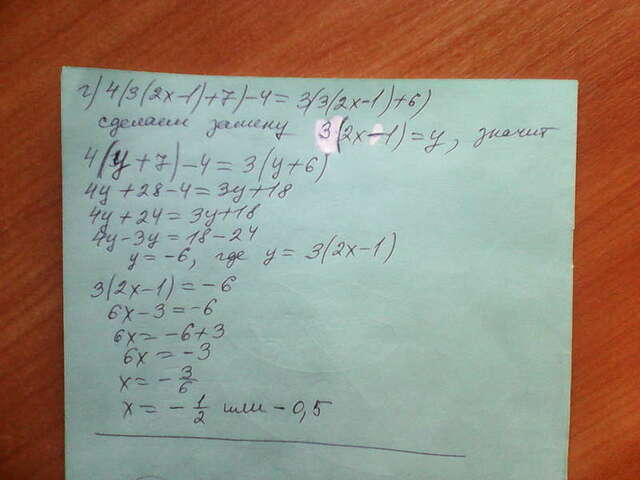 г) 4(3(2x-1)+7)-4 = 3(3(2x-1)+6)
сделаем замену 3(2x-1)=y, значит
4(y+7)-4=3(y+6)
4y+28-4=3y+18
4y+24=3y+18
4y-3y=18-24
y=-6, где y=3(2x-1)
3(2x-1)=-6
6x-3=-6
6x=-6+3
6x=-3
x=-3/6
x=-1/2 или -0,5